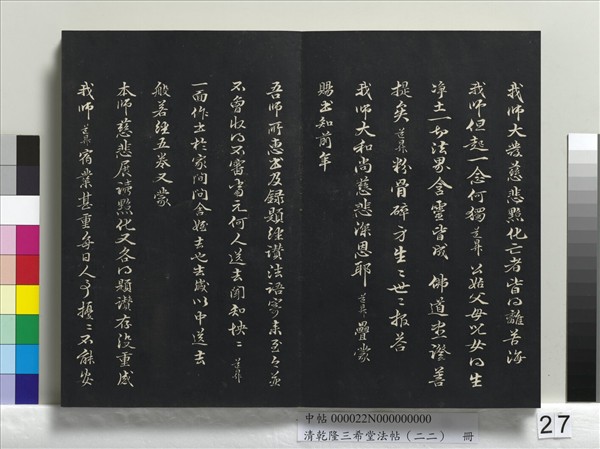 我師大發慈悲點化亡者皆得離苦海
我師但起一念何獨道昇公姑父母兒女得生
淨土一切法界含靈皆成佛道並證菩
提矣道昇粉骨碎身生生世世報答
我師大和尚慈悲深恩耶道昇疊蒙
賜書知前年
吾師所惠書及錄題經讚法語寄來至今並
不曾收得不審當元何人送去聞知怏怏道昇
一面作書於家間問舍姪去也去歲以中送去
般若經五卷又蒙
本師慈悲展誦點化又各得題讚存沒重感
我師道昇宿業甚重每日人事擾擾不能安
中帖 000022N000000000
清乾隆三希堂法帖(二二) 冊
27